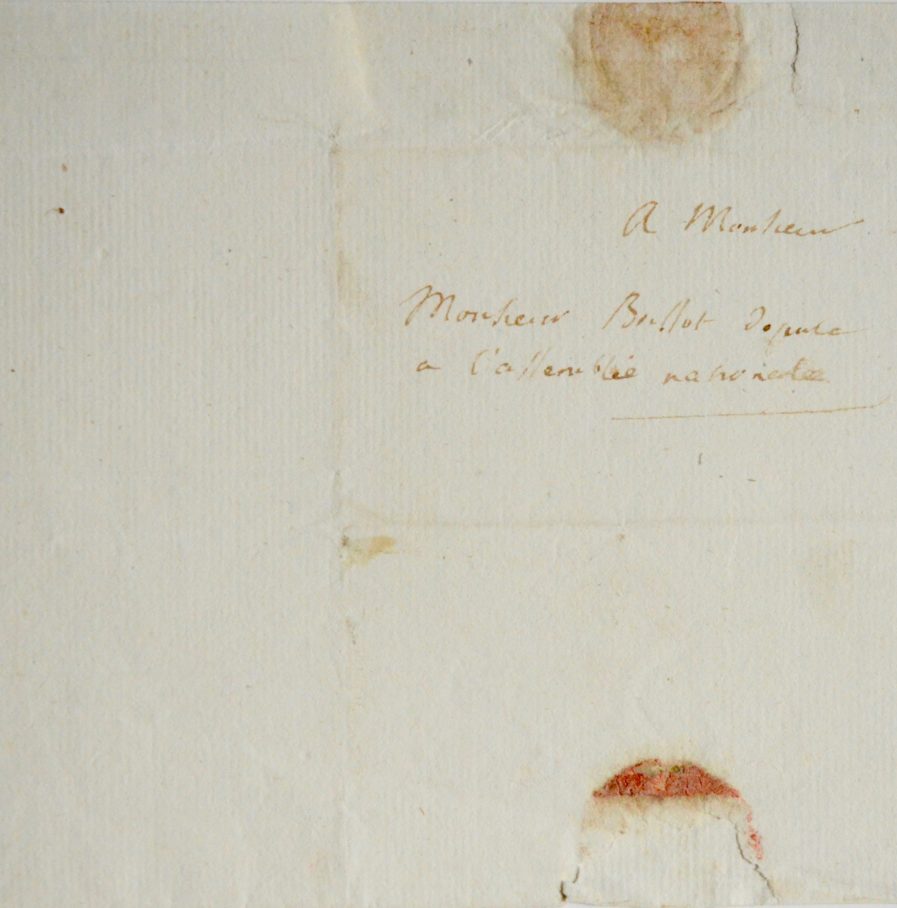 A Monsieur
Monsieur Bussot depute
a l'assemblée nationale